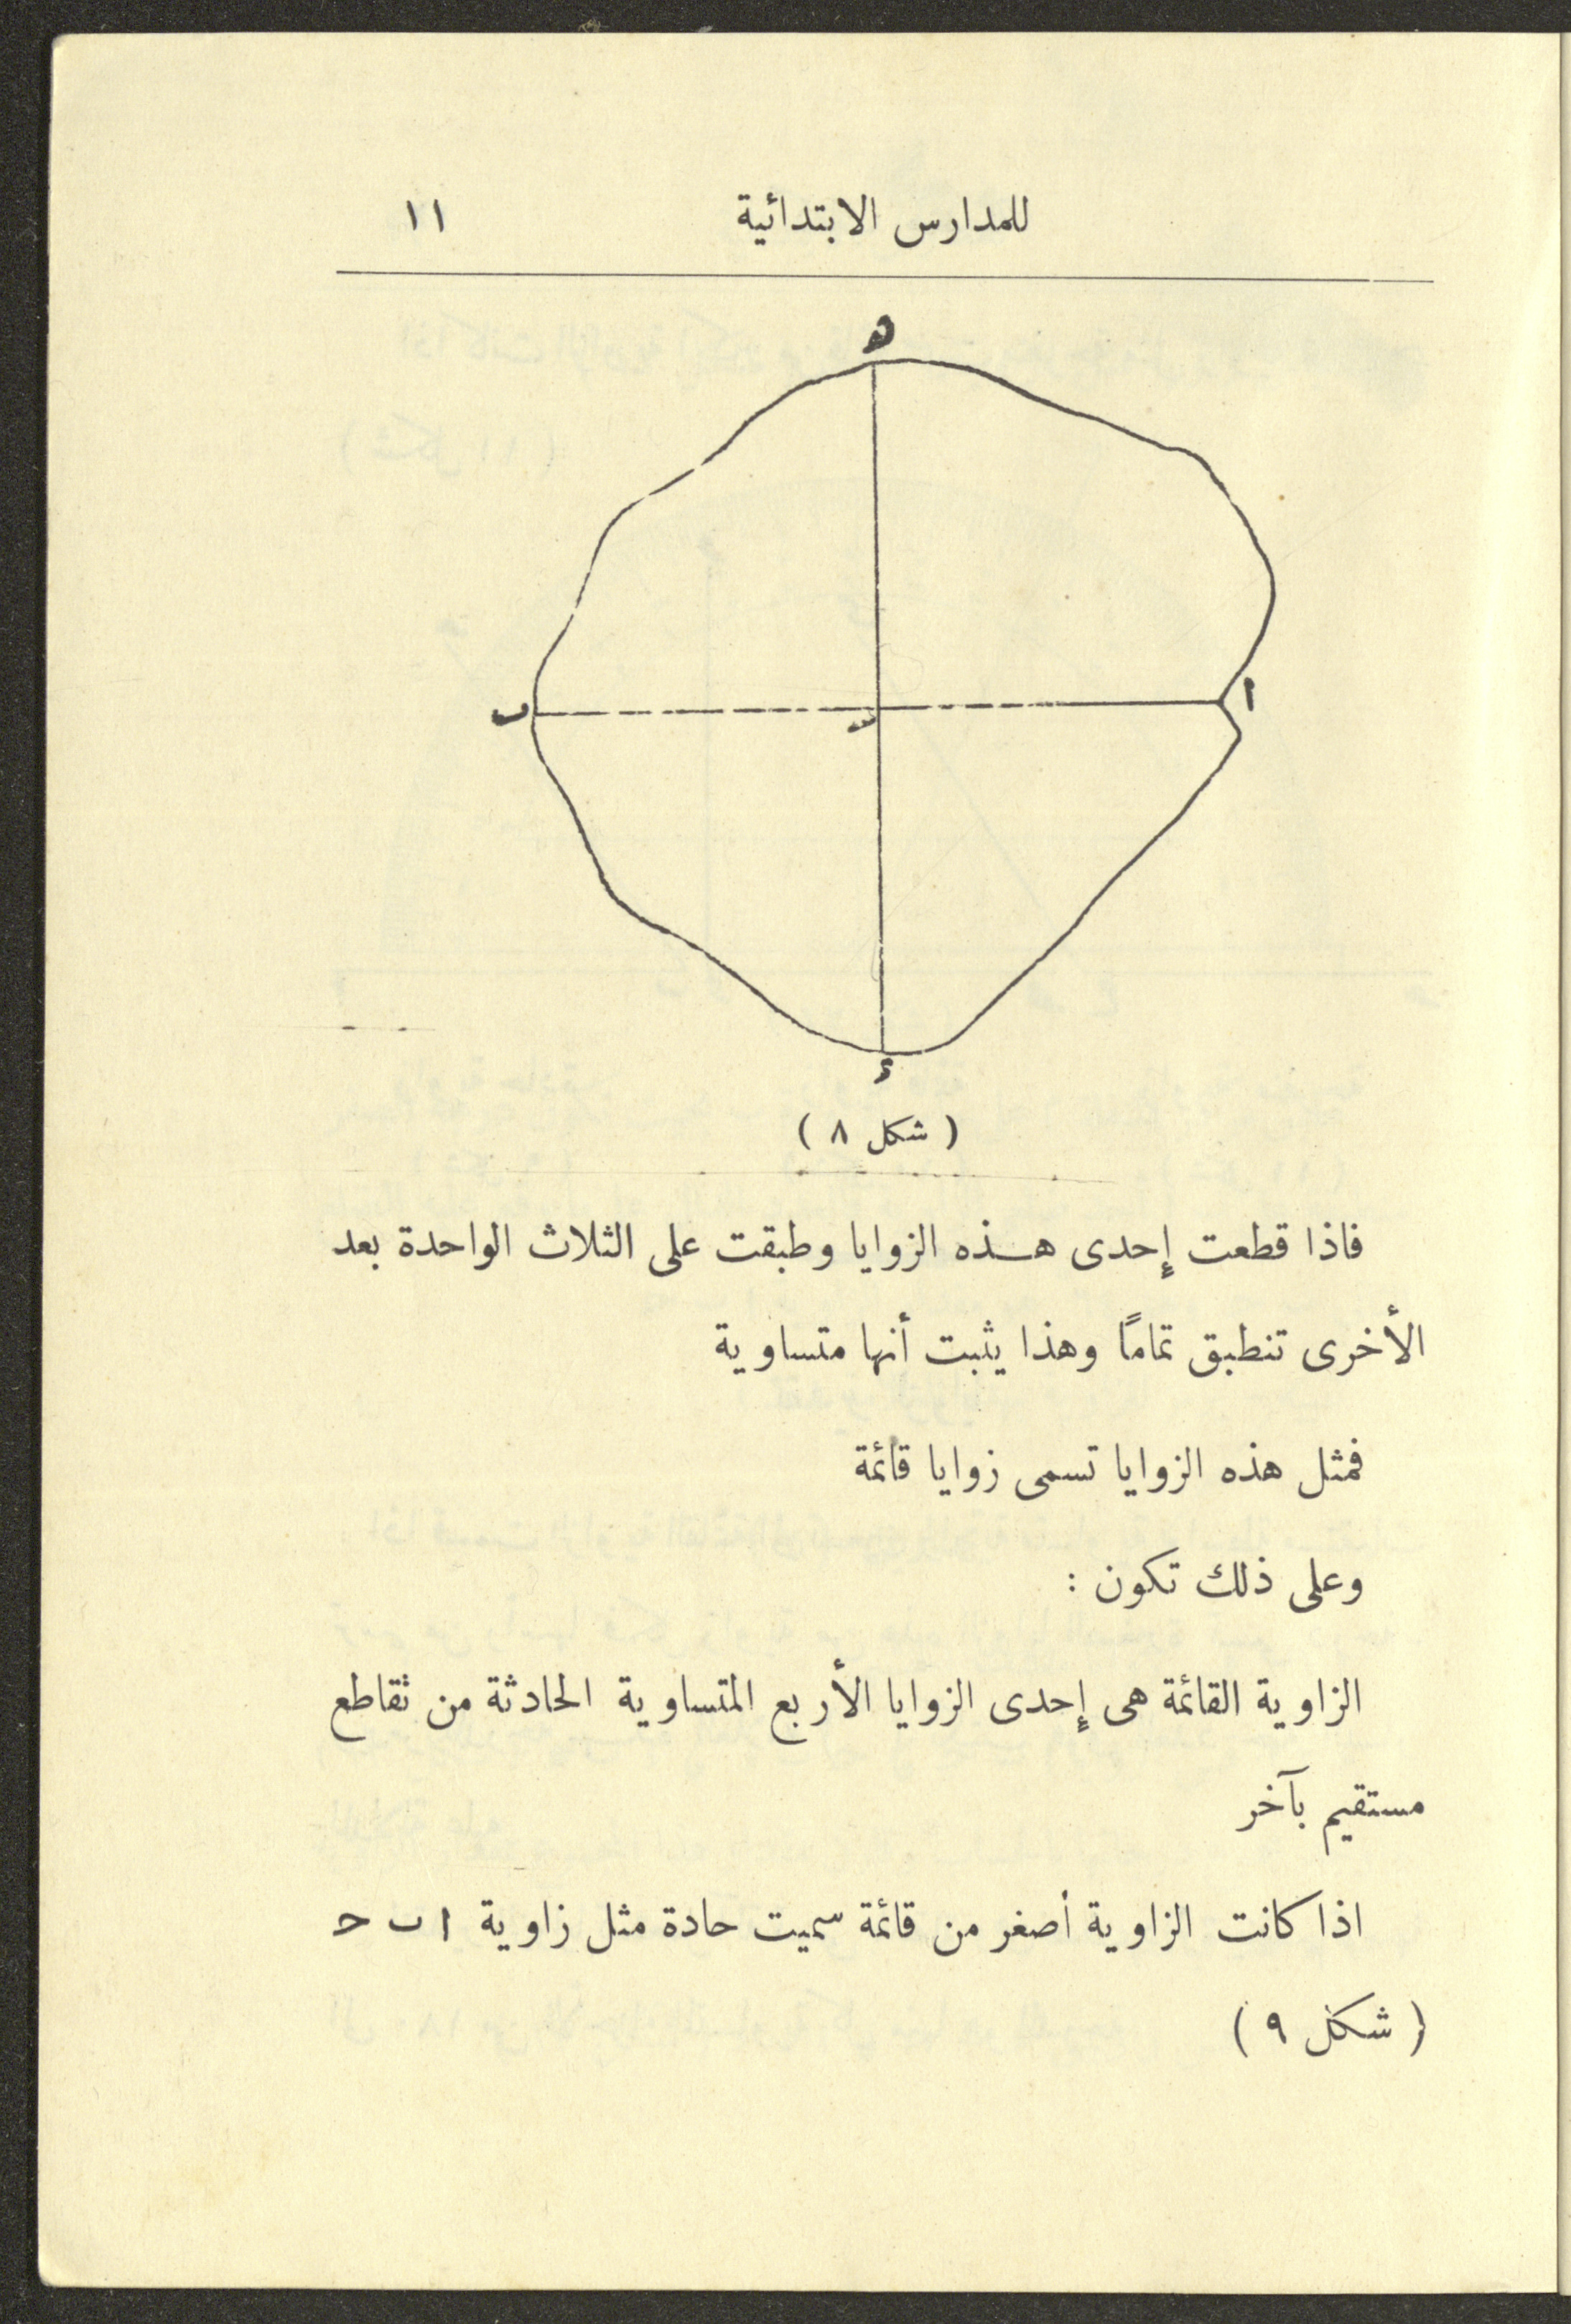 للمدارس الابتدائية ١١
ه
ا
ب
ء
( شكل ٨ )
فاذا قطعت إحدى هذه الزوايا وطبقت على الثلاث الواحدة بعد
الأخرى تنطبق تمامًا وهذا يثبت أنها متساوية
فمثل هذه الزوايا تسمى زوايا قائمة
وعلى ذلك تكون :
الزاوية القائمة هى إحدى الزوايا الأربع المتساوية الحادثة من تقاطع
مستقيم بآخر
اذا كانت الزاوية أصغر من قائمة سميت حادة مثل زاوية ا ب ح
( شكل ٩ )